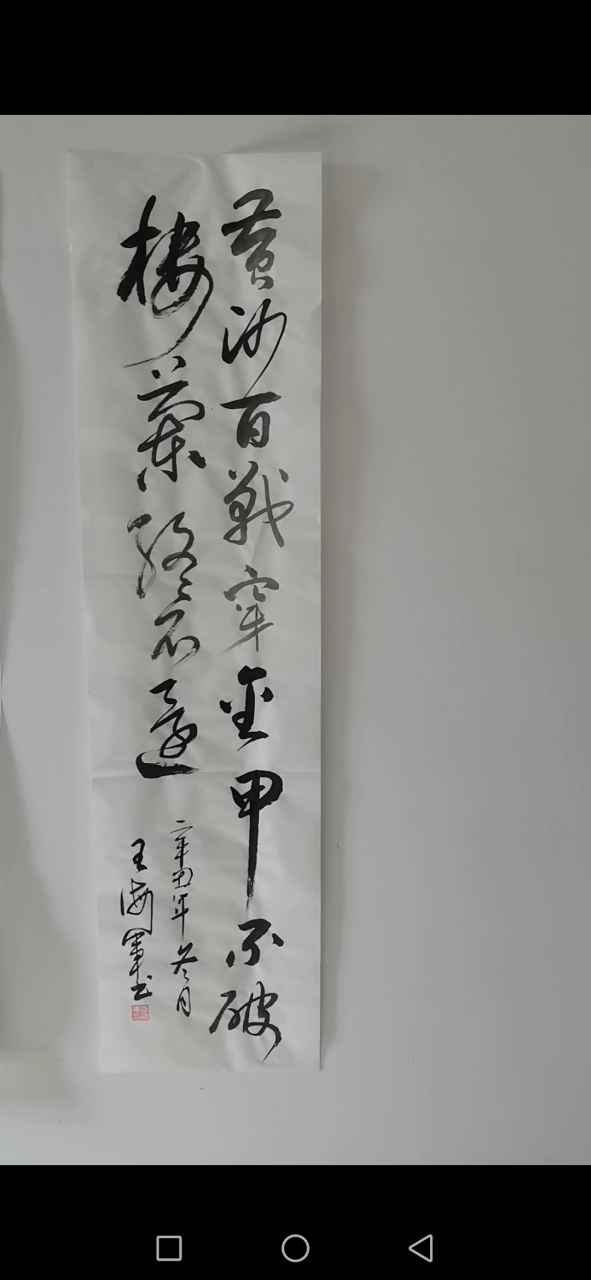 黄沙百戰穿金甲不破
樓蘭終不還
辛丑年冬月
王海軍书